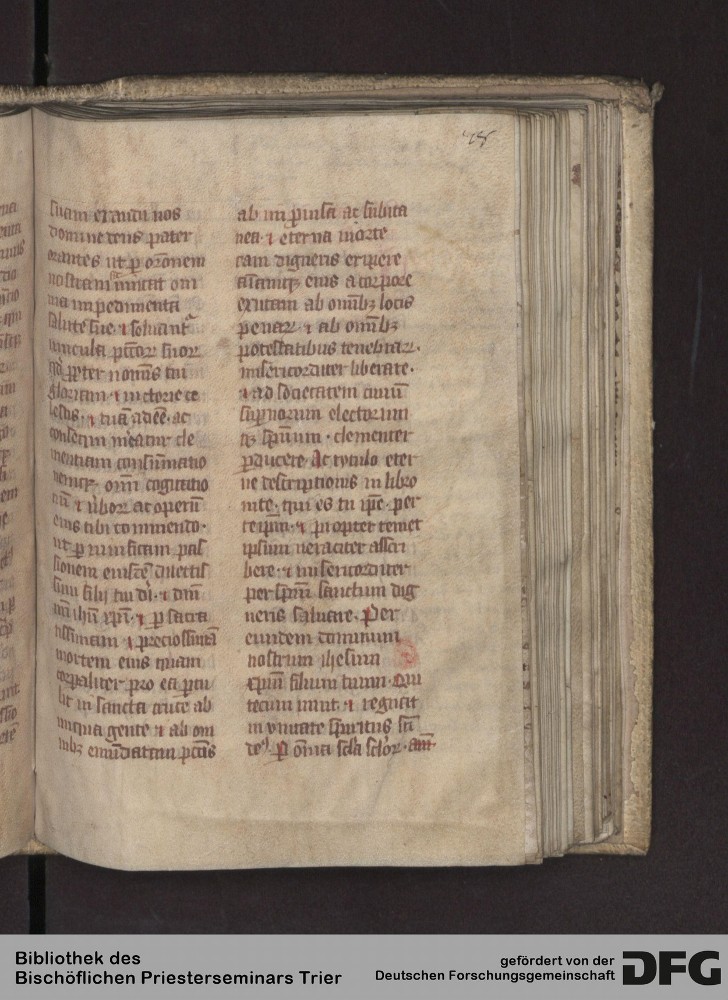 suam exaudi nos
domine deus pater
orantes ut per orõnem
nostram
ma impedimenta
salutē sue · ⁊ soluant
uincula pctõꝝ suoꝝ
ꝓpter nominis tui
gloriam · ⁊ uictorie ce
· ⁊ tuā · ac
cle
mentiam consūmatio
omī cogitatio
⁊ ac operū
eius tibi commendo ·
ut ꝑ pas
sionem dilectis
simi filii tui dñi · ⁊ dñi
ñri ihū xp̄i · ⁊ ꝑ sacra
tissimam · ⁊ preciosissimā
mortem eius quam
corporaliter pro ea
lit in sancta cruce ab
iniqua gente ⁊ ab om
nibꝫ emūdatam pctīs
ab ac subita
nea · ⁊ eterna morte
eam digneris eripere
eius a corpore
exutam ab omībꝫ locis
penaꝝ · ⁊ ab omībꝫ
potestatibus tenebraꝝ ·
misericorditer liberate ·
⁊ ad societatem ciuiū
supnorum electorum
spūum · clementer
ꝑducere · Ac tytulo eter
ne descriptionis in libro
uite · qui es tu ipē · per
te ipm̄ · ⁊ propter temet
ipsum ueraciter asscri
bere · ⁊ misericorditer
per spm̄ sanctum dig
neris saluare · Per
eundem dominum
nostrum ihesum
xpm̄ filium tuum · Qui
tecum uiuit · ⁊ regnat
in vnitate spiritus scī
deꝰ · Ꝑ omīa scla scloꝝ · am̄ ·
Bibliothek des
Bischöflichen Priesterseminars Trier
gefördert von der
Deutschen Forschungsgemeinschaft
DFG